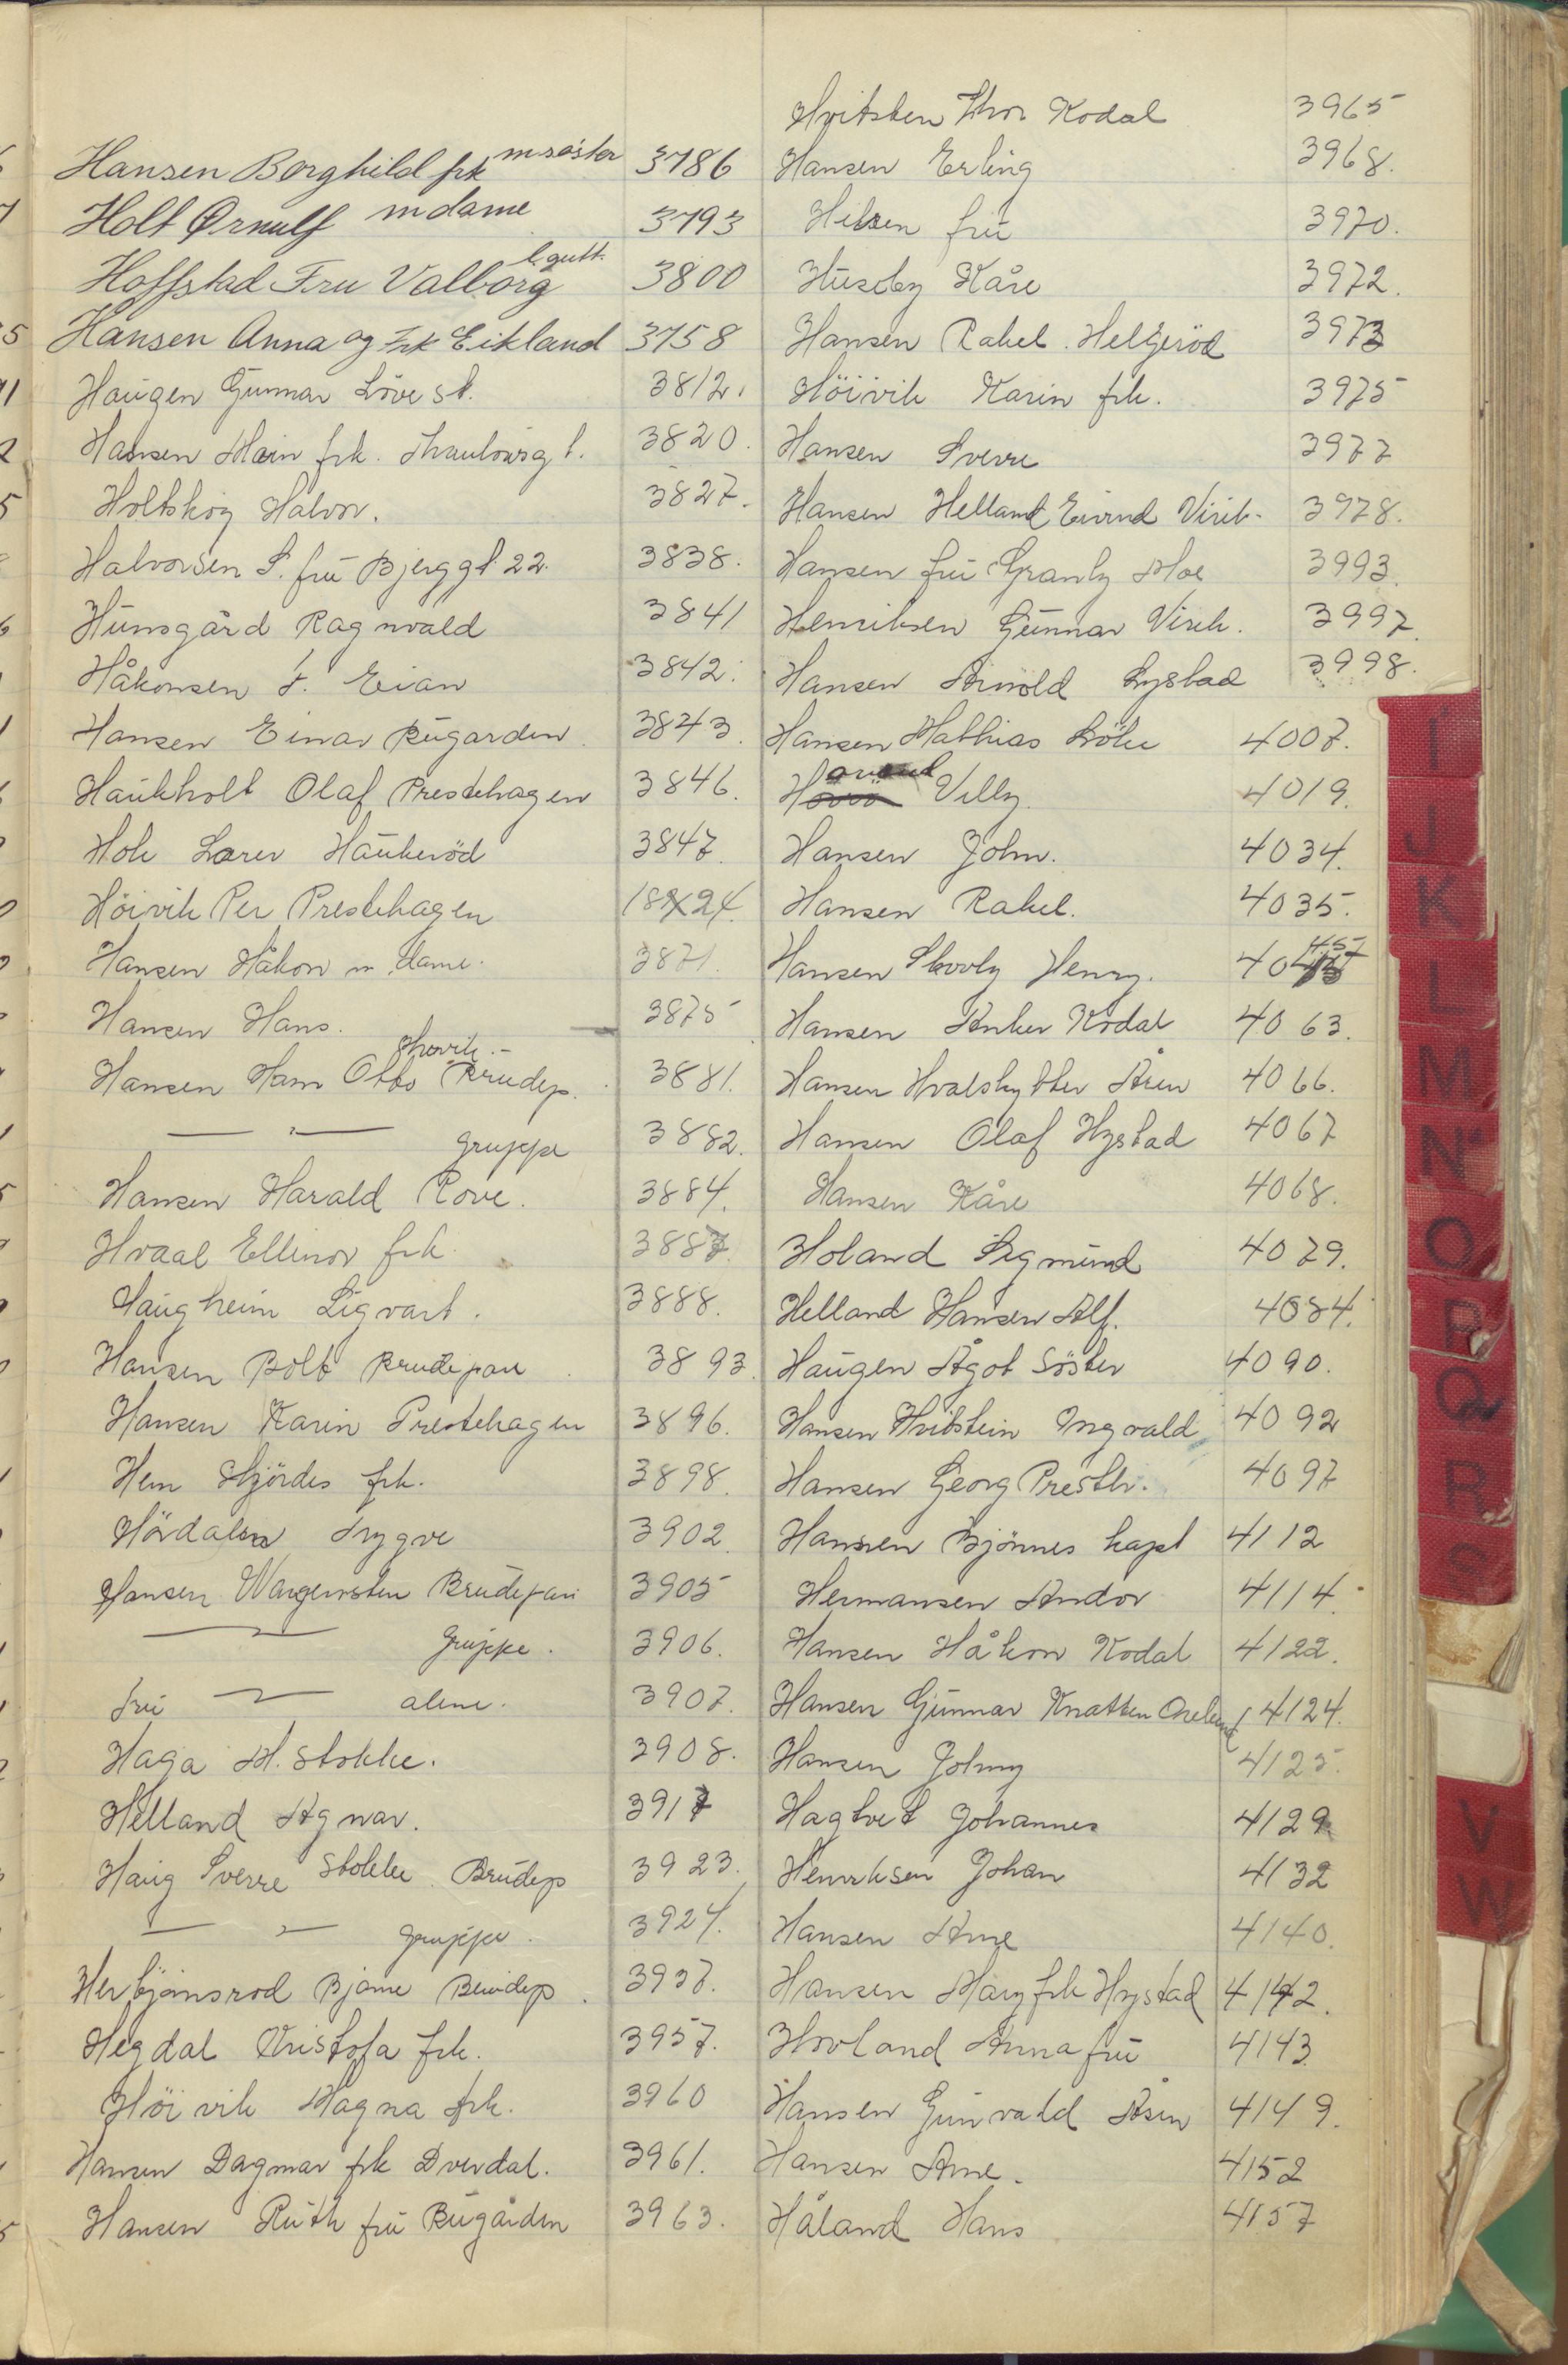 Hansen Borghild frk m söster 3786
Holt Ørnulf m dame 3793
Hoffstad Fru Valborg l. gutt. 3800
Hansen Anna og Frk Eikland 3758
Haugen Gunnar Löve st. 3812.
Hansen frk. Thaulowsg t. 3820.
Holtskog Halvor. 3827.
Halvorsen S. fru Bjerggt. 22. 3838.
Hunsgård Ragnvald 3841
Håkonsen F. Eian 3842.
Hansen Einar Bugården 3843.
Haukholt Olaf Prestehagen 3846.
Hole Lærer Haukeröd 3847.
Höivik Per Prestehagen
Hansen Håkon m. dame. 3871.
Hansen Hans. 3875
Hansen Hans Otto Thorvik.- Brudep. 3881.
— " — gruppe 3882.
Hansen Harald Rove. 3884.
Hvaal Ellinor frk. 3887.
Haugheim Sigvart. 3888.
Hansen Bolt Brudepar 3893.
Hansen Karin Prestehagen 3896.
Hem Hjördis frk. 3898.
Hördalen Trygve 3902.
Hansen Wangensten Brudepar 3905
— " — Gruppe. 3906.
Fru — " — alene. 3907.
Haga M. Stokke. 3908.
Helland Agnar. 3917
Haug Sverre Stokke Brudep 3923.
— " — gruppe. 3924.
Herbjörnsrod Bjarne Brudep. 3937.
Hegdal Kristofa frk. 3957.
Höivik Magna frk. 3960
Hansen Dagmar frk Dverdal. 3961.
Hansen Ruth fru Bugården 3963.
Hvitsten Thor Kodal 3965
Hansen Erling 3968.
Hilsen fru 3970.
Huseby Kåre 3972.
Hansen Rakel. Helgeröd 3973
Höivik Karin frk. 3975
Hansen Sverre 3977
Hansen Helland Eivind Virik. 3978.
Hansen fru Granly Moe 3993.
Henriksen Gunnar Virik. 3997.
Hansen Arnold Lystad 3998.
Hansen Mathias Löke 4007.
Villy. 4019.
Hansen John. 4034.
Hansen Rakel. 4035.
Hansen Skovly Henry.
Hansen Anker Kodal 4063.
Hansen Hvalskytter Åsen 4066.
Hansen Olaf Hystad 4067
Hansen Kåre 4068.
Holand Sigmund 4079.
Helland Hansen Alf. 4084.
Haugen Ågot Söster 4090.
Hansen Hvitstein Ingvald 4092
Hansen Georg Presth. 4097
Hansen Bjönnes kapt 4112
Hermansen Andor 4114.
Hansen Håkon Kodal 4122.
Hansen Gunnar Knatten 4124.
Hansen Johny 4125.
Hagtvet Johannes 4129
Henriksen Johan 4132
Hansen Arne 4140.
Hansen Mary frk Hystad 4142.
Hovland Anna fru 4143
Hansen Gunvald Åsen 4149.
Hansen Arne. 4152
Håland Hans 4157
I
J
K
L
M
N
O
P
Q
R
S
V
W